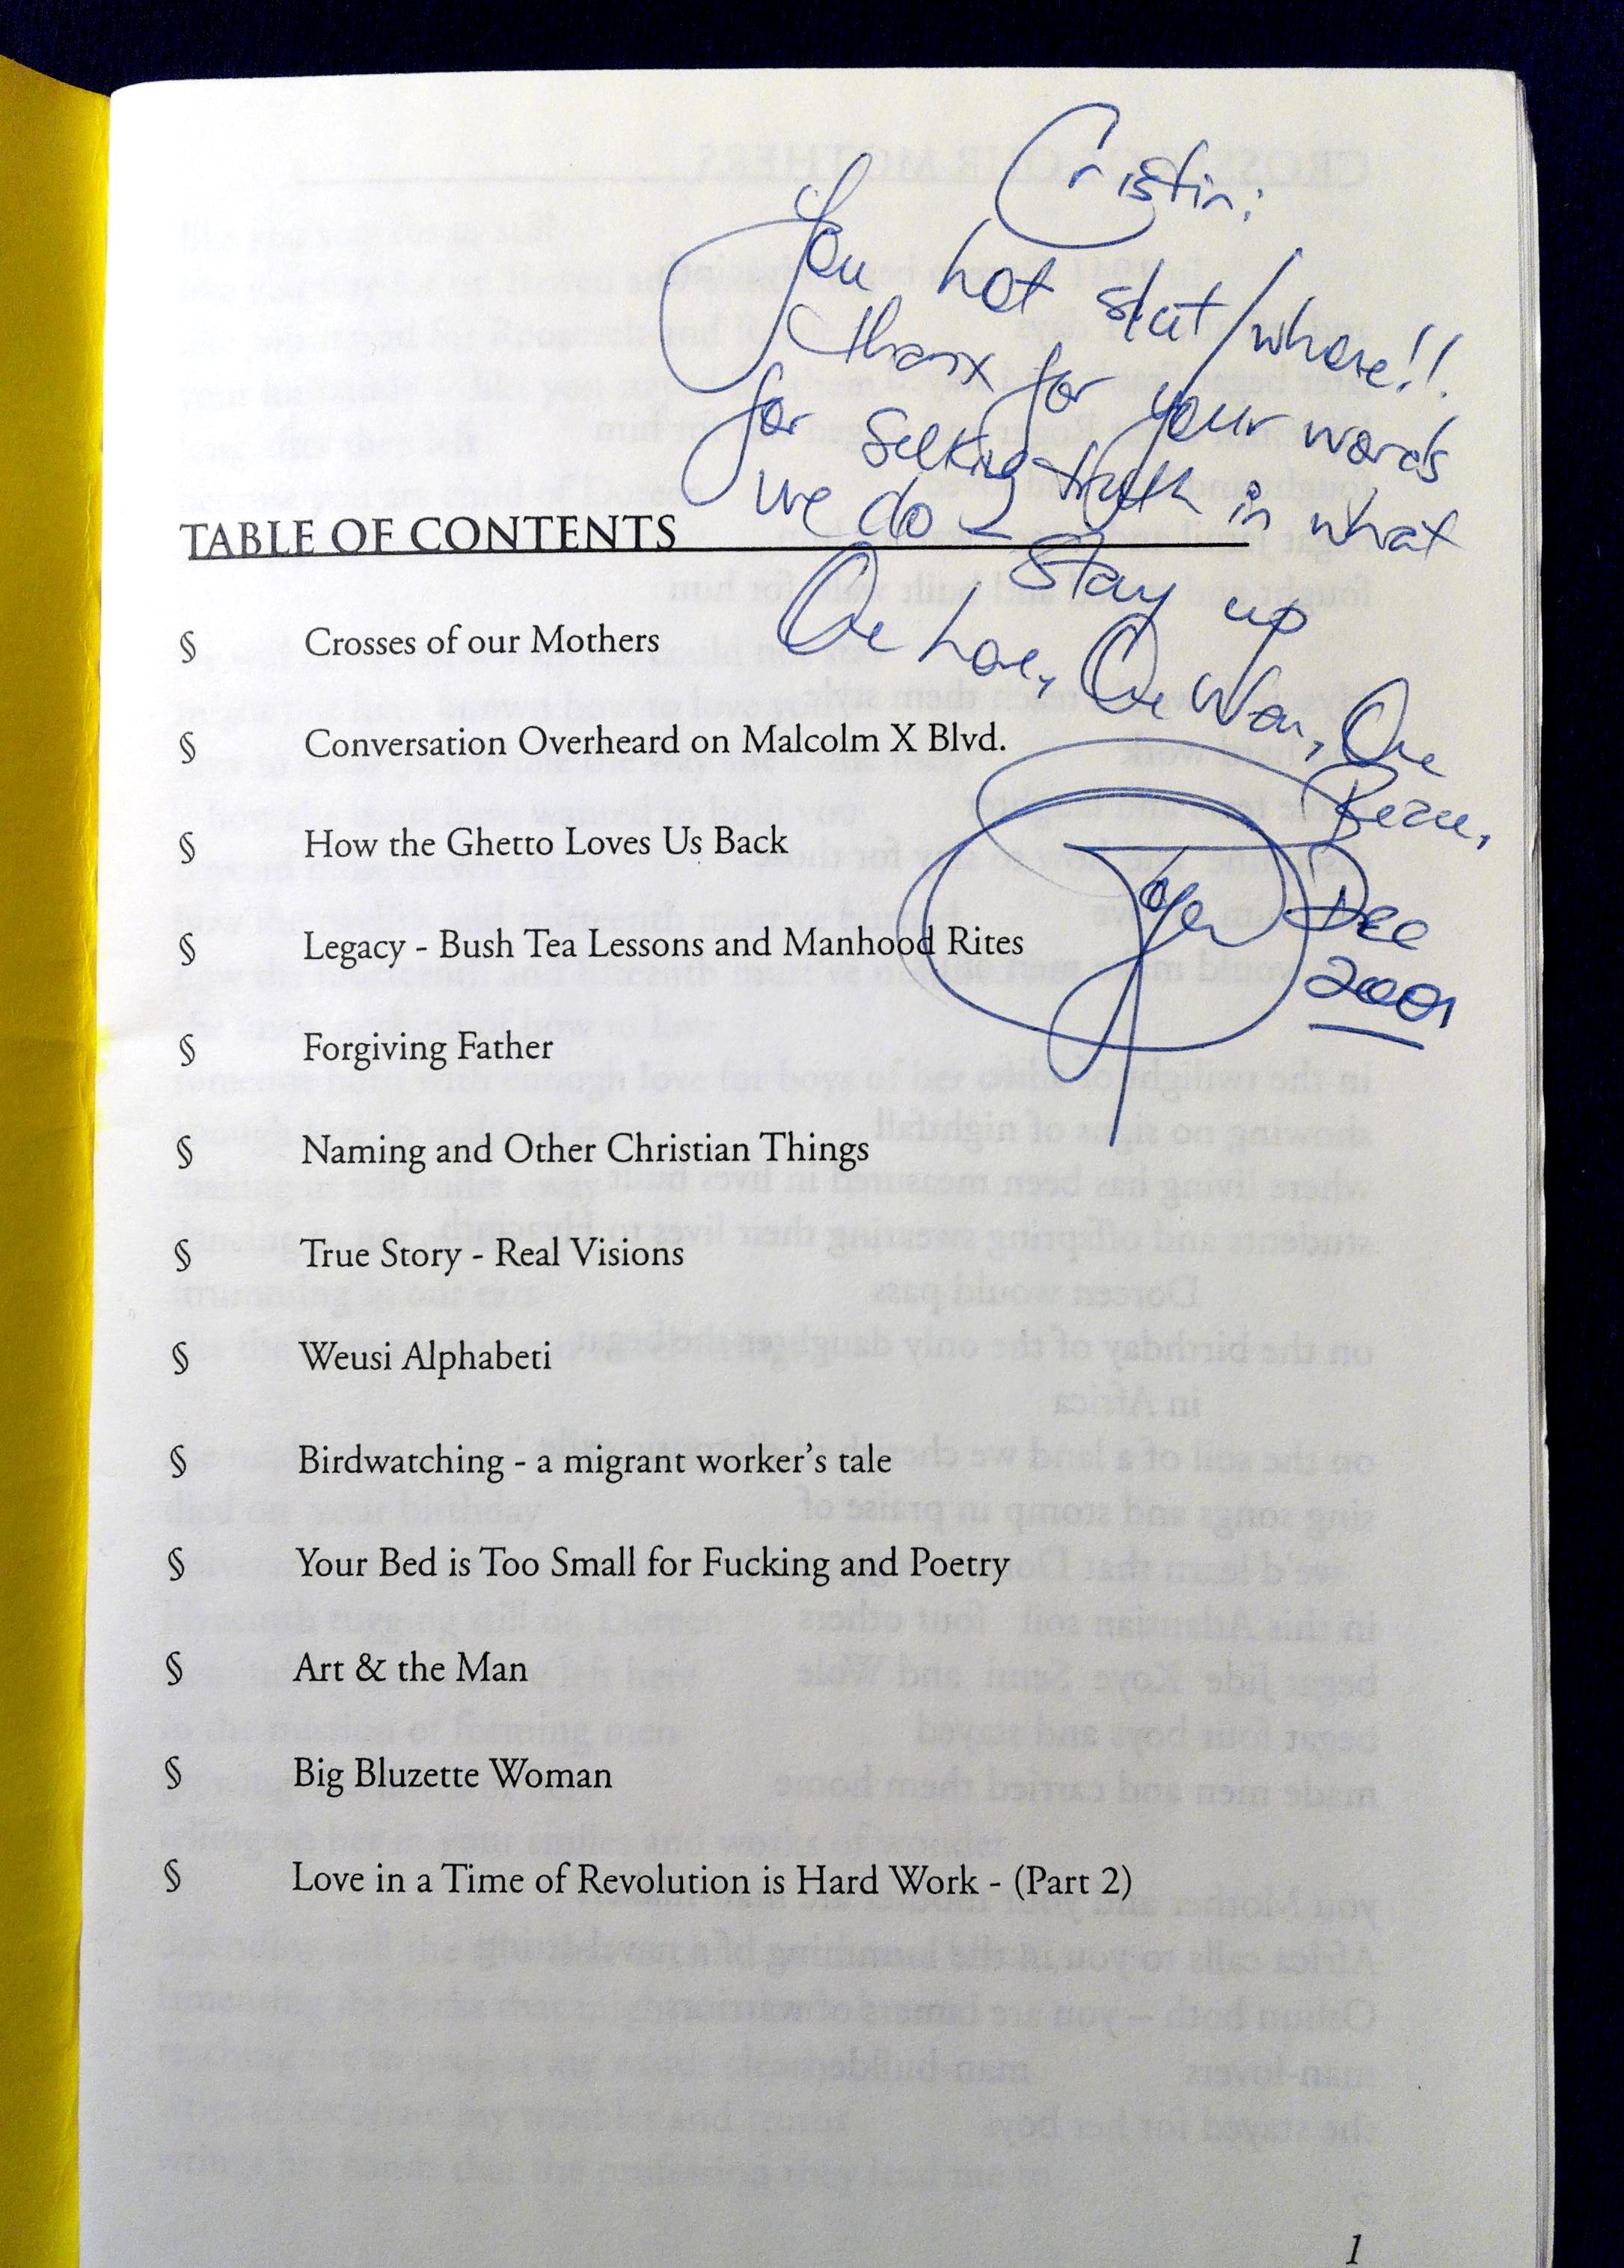 Cristin:
You hot slut/whore!!
thanx for your words
for seeking truth in what
we do
Stay up
One Love, One War, One
Dec
2001
TABLE OF CONTENTS
§ Crosses of our Mothers
§ Conversation Overheard on Malcolm X Blvd.
§ How the Ghetto Loves Us Back
§ Legacy - Bush Tea Lessons and Manhood Rites
§ Forgiving Father
§ Naming and Other Christian Things
§ True Story - Real Visions
§ Weusi Alphabeti
§ Birdwatching - a migrant worker's tale
§ Your Bed is Too Small for Fucking and Poetry
§ Art & the Man
§ Big Bluzette Woman
§ Love in a Time of Revolution is Hard Work - (Part 2)
1